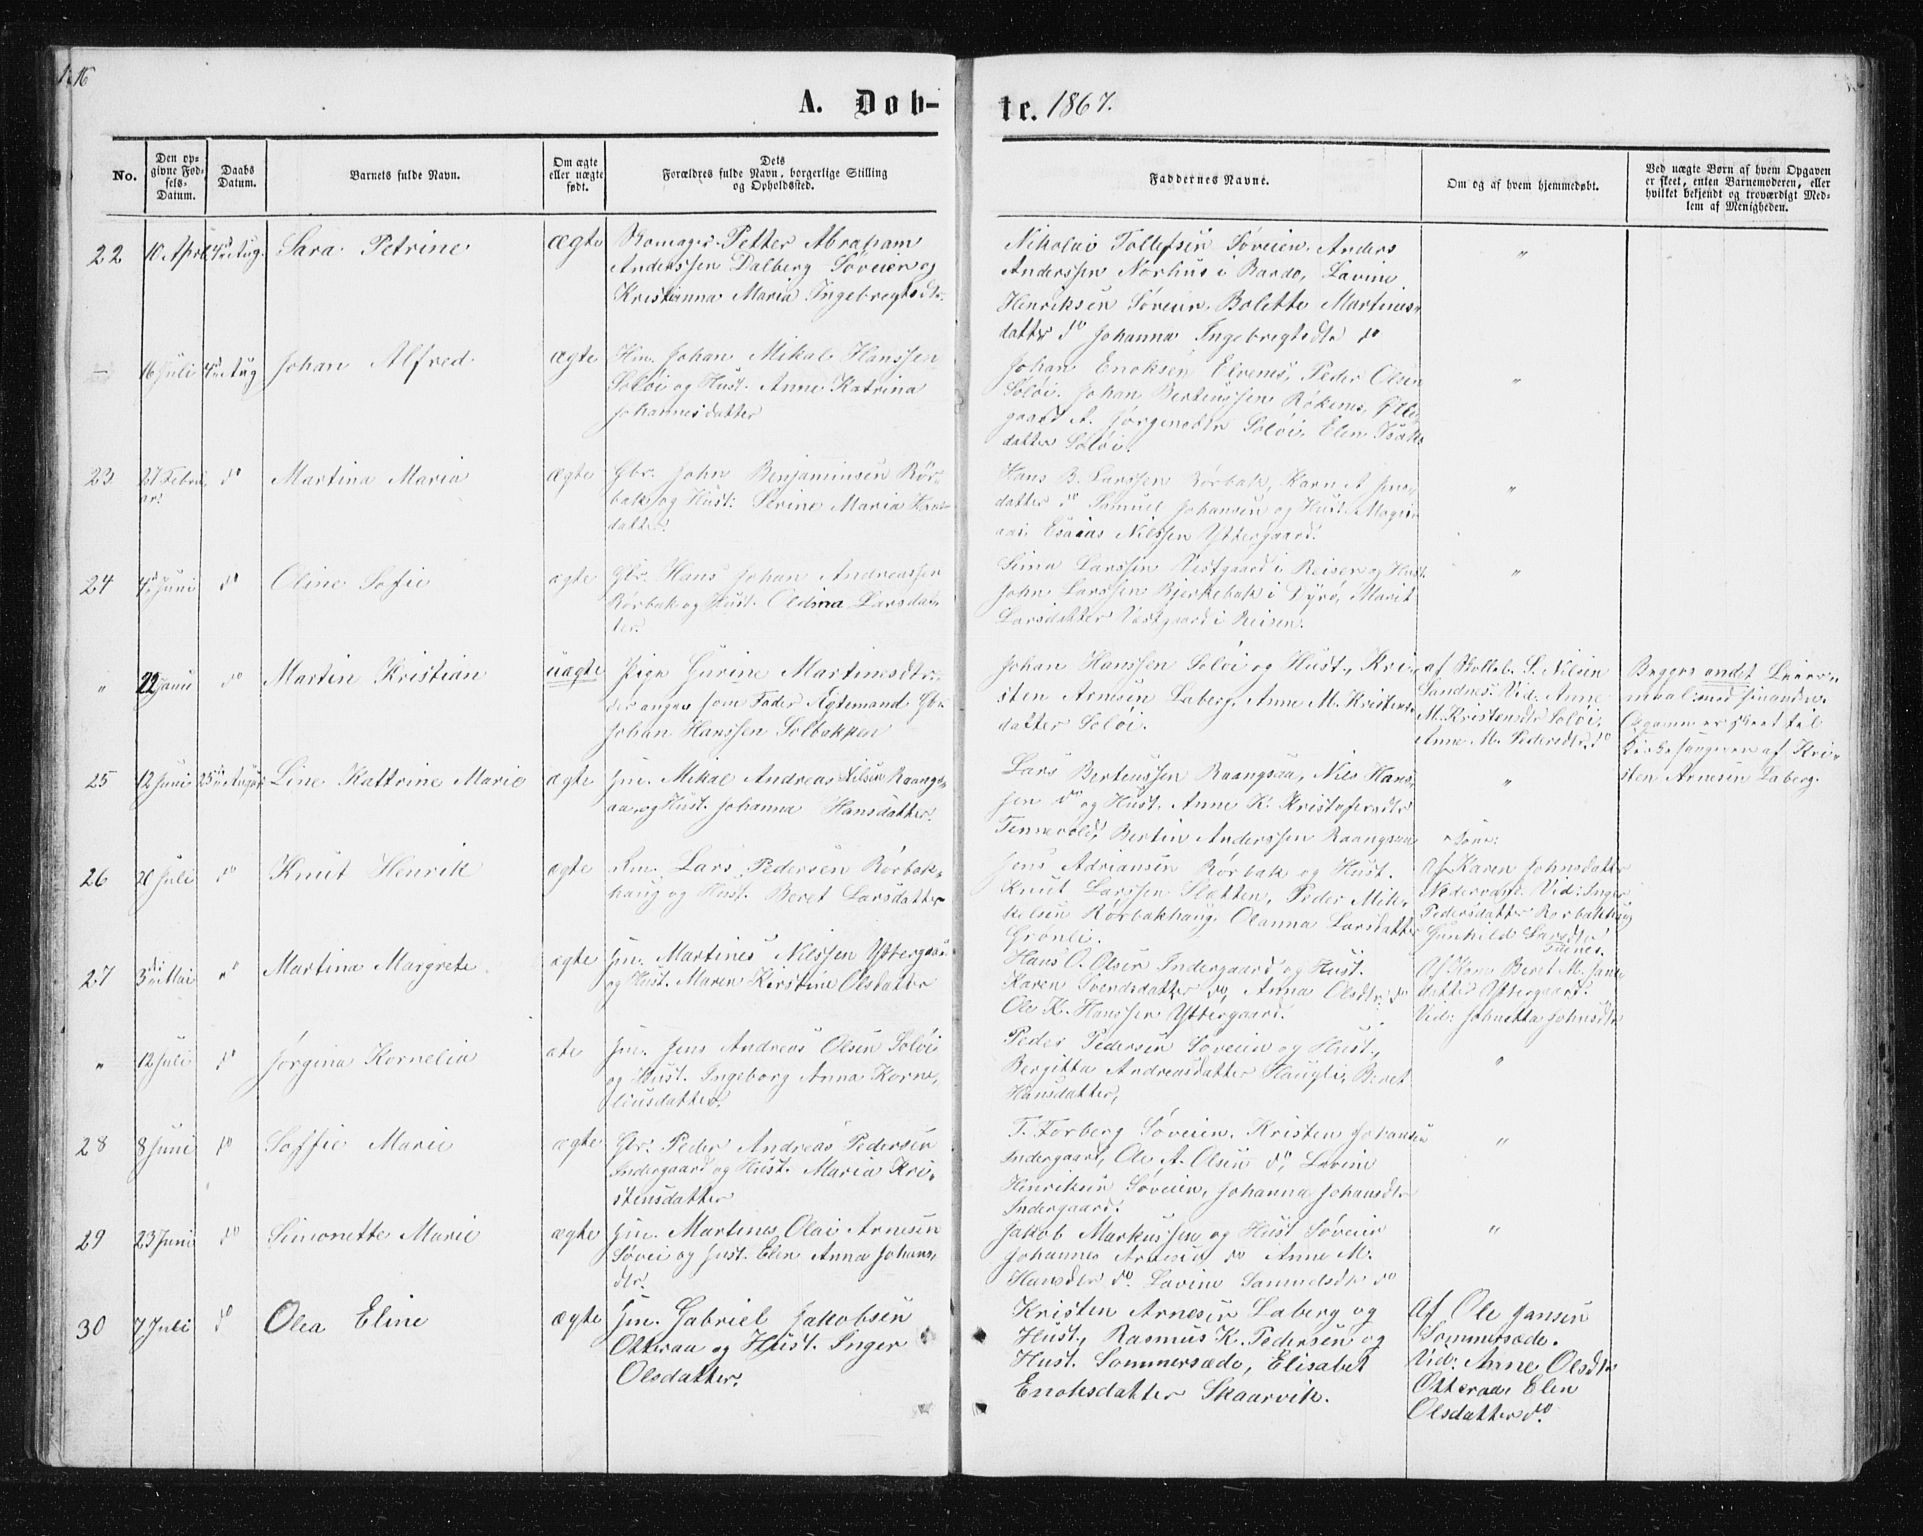 16
A. Døb-
te. 1867.
No.
Den op-
givne Fød-
sels-
Datum.
Daabs
Datum.
Barnets fulde Navn.
Om ægte
eller uægte
født.
Dets
Forældres fulde Navn, borgerlige Stilling
og Opholdssted.
Faddernes Navne.
Om og af hvem hjemmedøbt.
Ved uægte Børn af hvem Opgaven
er skeet, enten Barnemoderen, eller
hvilket bekjendt og troværdigt Med-
lem af Menigheden.
22 10 April 4de Aug. Sara Petrine ægte
Skomager Petter Abraham
Anderssen Dalberg Søveien og
Kristianna Maria Ingebregtsdtr.
Nikolai Tollefsen Søveien, Anders
Anderssen Nørhus i Bardo, Lavine
Henriksen Søveien, Bolette Martines-
datter do Johanna Ingebregtsdtr do
"
— 16 Juli 4de Aug Johan Alfred ægte
Johan Mikal Hanssen
Soløi og Hust. Anne Katrina
Johannesdatter
Johan Enoksen Elvenes, Peder Olsen
Soløi, Johan Berteussen Rökenes,
A. Jørgensdtr Soløi, Elen Isaks
datter Soløi.
"
23 27 Febru
ar. do Martina Maria ægte
Gbr. John Benjaminsen Rør-
bak og Hust: Serine Maria
datter.
Hans B. Larssen Rørbak, Karn A
datter do Samuel Johansen og Hust.
Esaias Nilssen Yttergaard.
"
24 4de Juni do Oline Sofie ægte
Gbr. Hans Johan Andreassen
Rørbak og Hust. Oldina Larsdat-
ter.
Simon Larssen Vestgaard i Reisen og Hust.
John Larssen Bjerkebak i Dyrø, Marit
Larsdatter Vestgaard i Reisen.
"
" 22 Juni do Martin Kristian uægte
Pige Gurine Martinesdtr.
der anger som Fader Ægtemand Gbr.
Johan Hanssen Solbakken
Johan Hanssen Soløi og Hust., Kri-
sten Arnesen Laberg, Anne M. Kristens-
datter Soløi.
af Skoleh. S. Nilsen
Sandnes. Vid. Anne
M. Kristensdtr Soløi,
Anne M. Pedersdtr. do
Begges andet Leier-
maal med hinanden.
Opgaven er skeet til
Kirkesangeren af Kri-
sten Arnesen Laberg.
25 12 Juni 25de August Line Kattrine Marie ægte
Mikal Andreas Nilsen Raangs-
aa og Hust. Johanna Hansdatter.
Lars Berteussen Raangsaa, Nils Hans-
sen do og Hust. Anne K. Kristofersdtr
Tennevold, Bertin Anderssen Raangsaa
"
26 20 Juli do Knut Henrik ægte
Lars Pedersen Rørbak-
haug og Hust. Beret Larsdatter
Jens Adriansen Rørbak og Hust.
Knut Larssen Slætten, Peder Mik-
kelsen Rørbakhaug, Olanna Larsdatter
Grønli.
Af Karen Johnsdatter
Nedervand. Vid: Inger
Pedersdatter Rørbakhaug
Gunhild Larsdtr
27 3die Mai do Martina Margrete ægte
Martines Nilssen Yttergaard
og Hust. Maren Kirstine Olsdatter
Hans O. Olsen Indergaard og Hust.
Karen Svendsdatter do, Anna Olsdtr. do
Ole K. Hanssen Yttergaard.
Af Beret M.
datter Yttergaard.
Vid: Johnetta Johnsdtr
" 12 Juli do Jørgina Kornelia
Jens Andreas Olsen Soløi
og Hust. Ingeborg Anna Korne-
liusdatter.
Peder Pedersen Søveien og Hust.,
Bergitta Andreasdatter Haugli, Beret
Hansdatter,
"
28 8 Juni do Soffie Marie ægte
Gbr. Peder Andreas Pedersen
Indergaard og Hust. Maria Kri-
stensdatter
T. Forberg Søveien, Kristen Johansen
Indergaard, Ole A. Olsen do, Lovine
Henriksen Søveien, Johanna Johansdtr
Indergaard.
"
29 23 Juni do Simonette Marie ægte
Martines Olai Arnesen
Søvei og Hust. Elen Anna Johans-
dtr.
Jakob Markussen og Hust Søveien
Johannes Arnesen do Anne M.
Hansdtr do. Lovine Samuelsdtr do
"
30 7 Juli do Olea Eline ægte
Gabriel Jakobsen
Otteraa og Hust. Inger
Olsdatter.
Kristen Arnesen Laberg og
Hust., Rasmus K. Pedersen og
Hust. Sommersæde, Elisabet
Enoksdatter Skaarvik.
Af Ole Jansen
Sommersæde.
Vid: Anne Olsdtr
Otteraa, Elen
Olsdatter do.